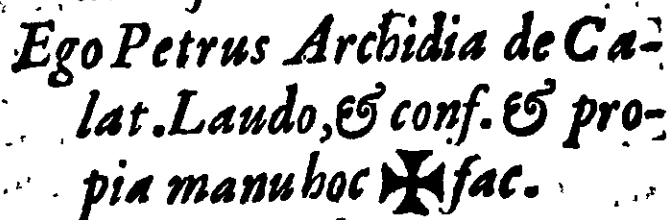 Ego Petrus Archidia de Ca-
lat. Laudo, & conf. & pro-
pia manu hoc ✠ fac.